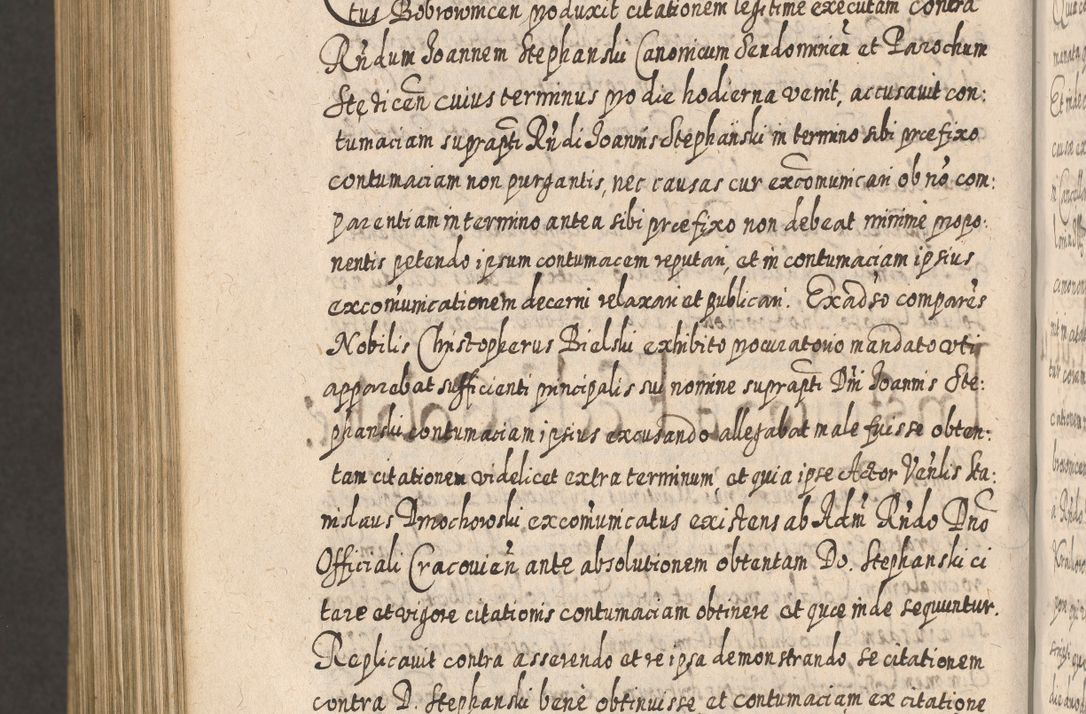 tus Bobrowincen produxit citationem legitime executam contra
Rñdum Joannem Stephanski Canonicum Sendomirieñ et Parochum
Stęzicen̄ cuius terminus pro die hodierna venit, accusavit con:
tumaciam suprapti Rñdi Joannis Stephanski in termino sibi præfixo
contumaciam non purgantis, nec causas cur excomunicari ob nõ com:
parentiam in termino antea sibi præfixo non debeat minime propo:
nentis petendo ipsum contumacem reputari, et in contumaciam ipsius
excomunicationem decerni relaxari et publicari. Exadso compares
Nobilis Christopherus Bielski exhibito procuratorio mandato uti
apparabat sufficienti principalis sui nomine suprapti Dñi Joannis Ste:
phanski contumaciam ipsius excusando allegabat male fuisse obten:
tam citationem videlicet extra terminum et quia ipse Actor Venlis Sta:
nislaus Dmochowski excomunicatus existens ab Adm Rñdo Dno
Officiali Cracovieñ ante absolutionem obtentam Do. Stephanski ci
tare et vigore citationis contumaciam obtinere et quæ inde sequuntur.
Replicavit contra asserendo et re ipsa demonstrando se citationem
contra D. Stephanski bene obtinuisse et contumaciam ex citatione